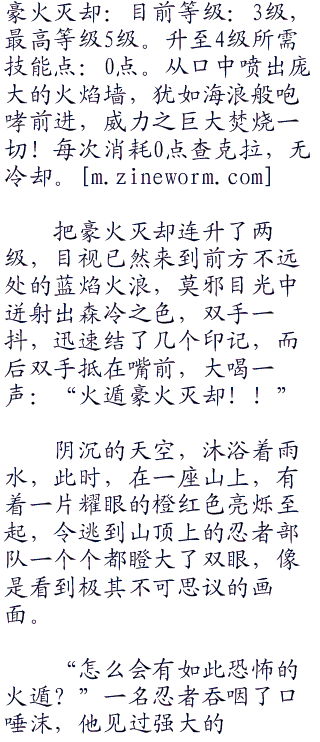 豪火灭却：目前等级：3级，
最高等级5级。升至4级所需
技能点：0点。从口中喷出庞
大的火焰墙，犹如海浪般咆
哮前进，威力之巨大焚烧一
切！每次消耗0点查克拉，无
冷却。[m.zineworm.com]
把豪火灭却连升了两
级，目视已然来到前方不远
处的蓝焰火浪，莫邪目光中
迸射出森冷之色，双手一
抖，迅速结了几个印记，而
后双手抵在嘴前，大喝一
声：“火遁豪火灭却！！”
阴沉的天空，沐浴着雨
水，此时，在一座山上，有
着一片耀眼的橙红色亮烁至
起，令逃到山顶上的忍者部
队一个个都瞪大了双眼，像
是看到极其不可思议的画
面。
“怎么会有如此恐怖的
火遁？”一名忍者吞咽了口
唾沫，他见过强大的